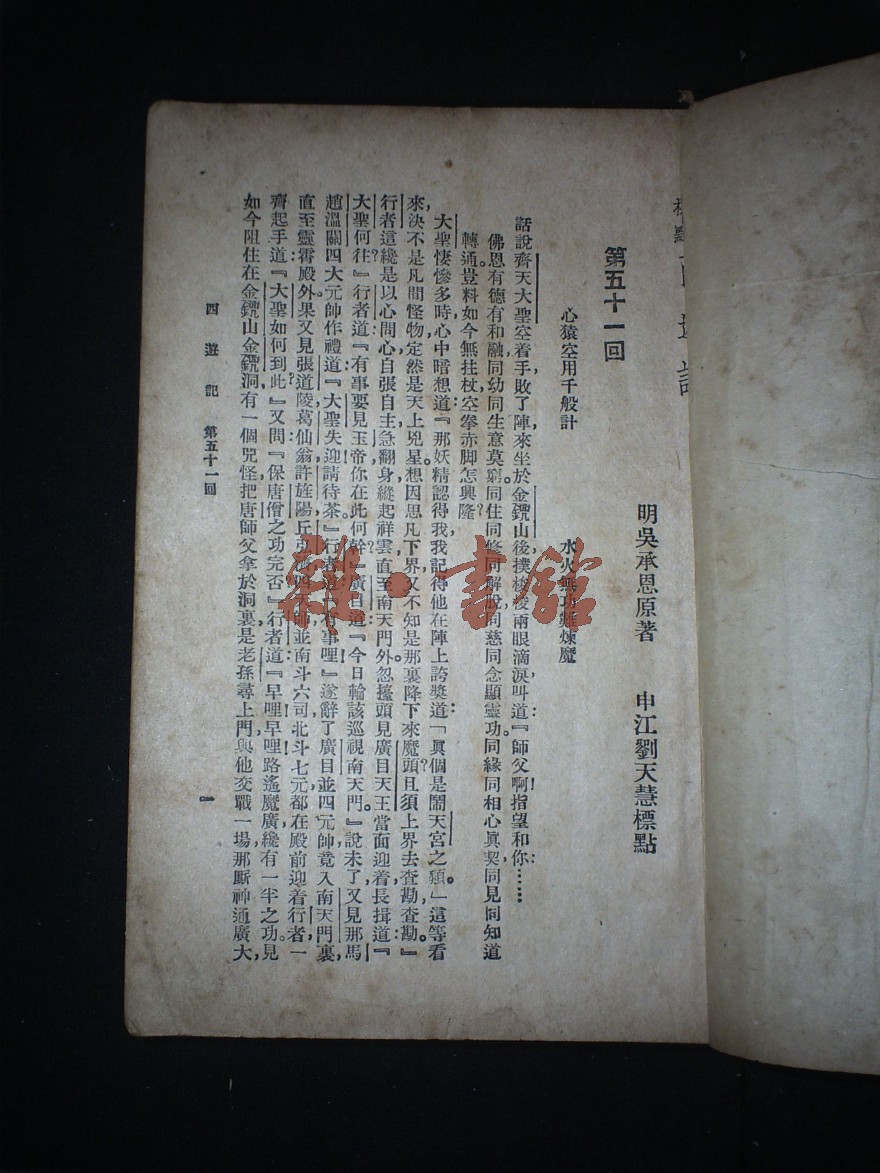 明吳承恩原著　申江劉天慧標點
第五十一回
心猿空用千般計　水火無功難煉魔
話說齊天大聖空着手敗了陣，來坐於金𨥙山後，撲梭梭兩眼滴淚，叫道：『師父啊！指望和你：……
佛恩有德有和融，同幼同生意莫窮。同住同修同解脫，同慈同念顯靈功。同緣同相心眞契，同見同知道
轉通。豈料如今無拄杖，空拳赤脚怎興隆？
大聖悽慘多時，心中暗想道：『那妖精認得我，我記得他在陣上誇獎道：「眞個是鬧天宮之類。」這等看
來，決不是凡間怪物，定然是天上兇星。想因思凡下界，又不知是那裏降下來魔頭？且須上界去查勘查勘。』
行者這纔是以心問心，自張自主，急翻身縱起祥雲，直至南天門外。忽擡頭見廣目天王，當面迎着長揖道：『
大聖何往？』行者道：『有事要見玉帝，你在此何幹？』廣目道：『今日輪該巡視南天門。』說未了，又見那馬
趙溫關四大元帥作禮道：『大聖失迎，請待茶。』行者道：『有事哩！』遂辭了廣目並四元帥，竟入南天門裏，
直至靈霄殿外，果又見張道陵、葛仙翁、許旌陽、丘弘濟四天師並南斗六司、北斗七元都在殿前迎着行者，一
齊起手道：『大聖如何到此？』又問：『保唐僧之功完否？』行者道：『早哩！早哩！路遙魔廣，纔有一半之功。見
如今阻住在金𨥙山金𨥙洞，有一個兕怪，把唐師父拿於洞裏，是老孫尋上門與他交戰一場，那厮神通廣大，
西遊記　第五十一回　一
雜·書館